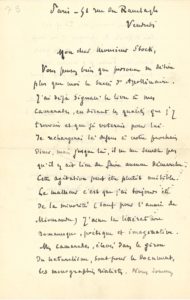 Paris – 91 rue du Ranelagh
Vendredi
Mon cher Monsieur Stock,
Vous pensez bien que personne ne désire
plus que moi le succès d'Apollinaire.
J'ai déjà signalé le livre à mes
camarades, en disant la qualité, que j'y
trouve et que je voterais pour lui
de
mais jusque là, il ne me semble pas
qu'il y ait lieu de faire aucune démarche.
Cette agitation peut être plutôt nuisible.
Le malheur c'est que j'ai toujours été
de la minorité (sauf pour l'année de
Miomandre) J'aime la littérature
romanesque, poétique et imagination.
Mes camarades, élevés dans le giron
du naturalisme, sont pour le document,
les monographies réalistes. Nous